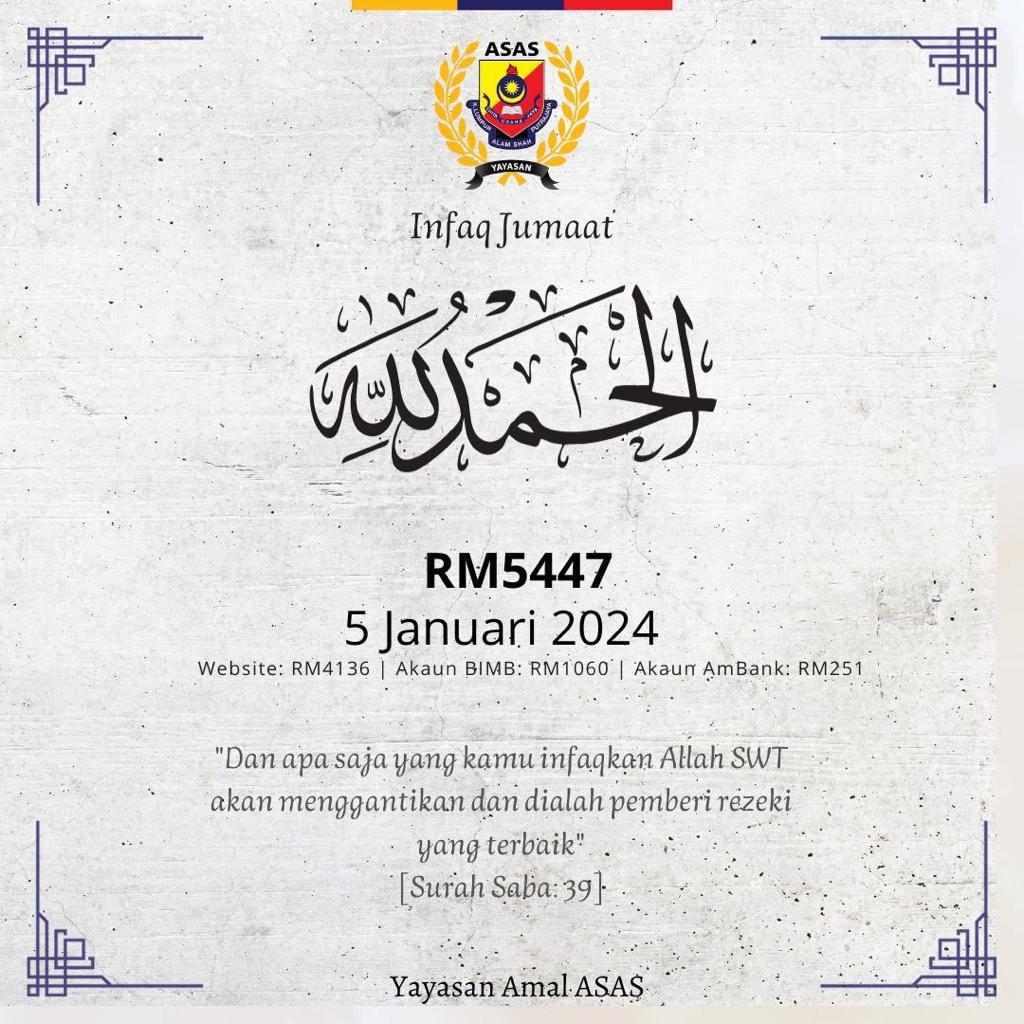 ASAS
CITA USAHA JAYA
K.LUMPUR
ALAM SHAH
PUTRAJAYA
YAYASAN
Infaq Jumaat
الحمد لله
RM5447
5 Januari 2024
Website: RM4136 | Akaun BIMB: RM1060 | Akaun AmBank: RM251
"Dan apa saja yang kamu infaqkan Allah SWT
akan menggantikan dan dialah pemberi rezeki
yang terbaik"
[Surah Saba: 39]
Yayasan Amal ASAS